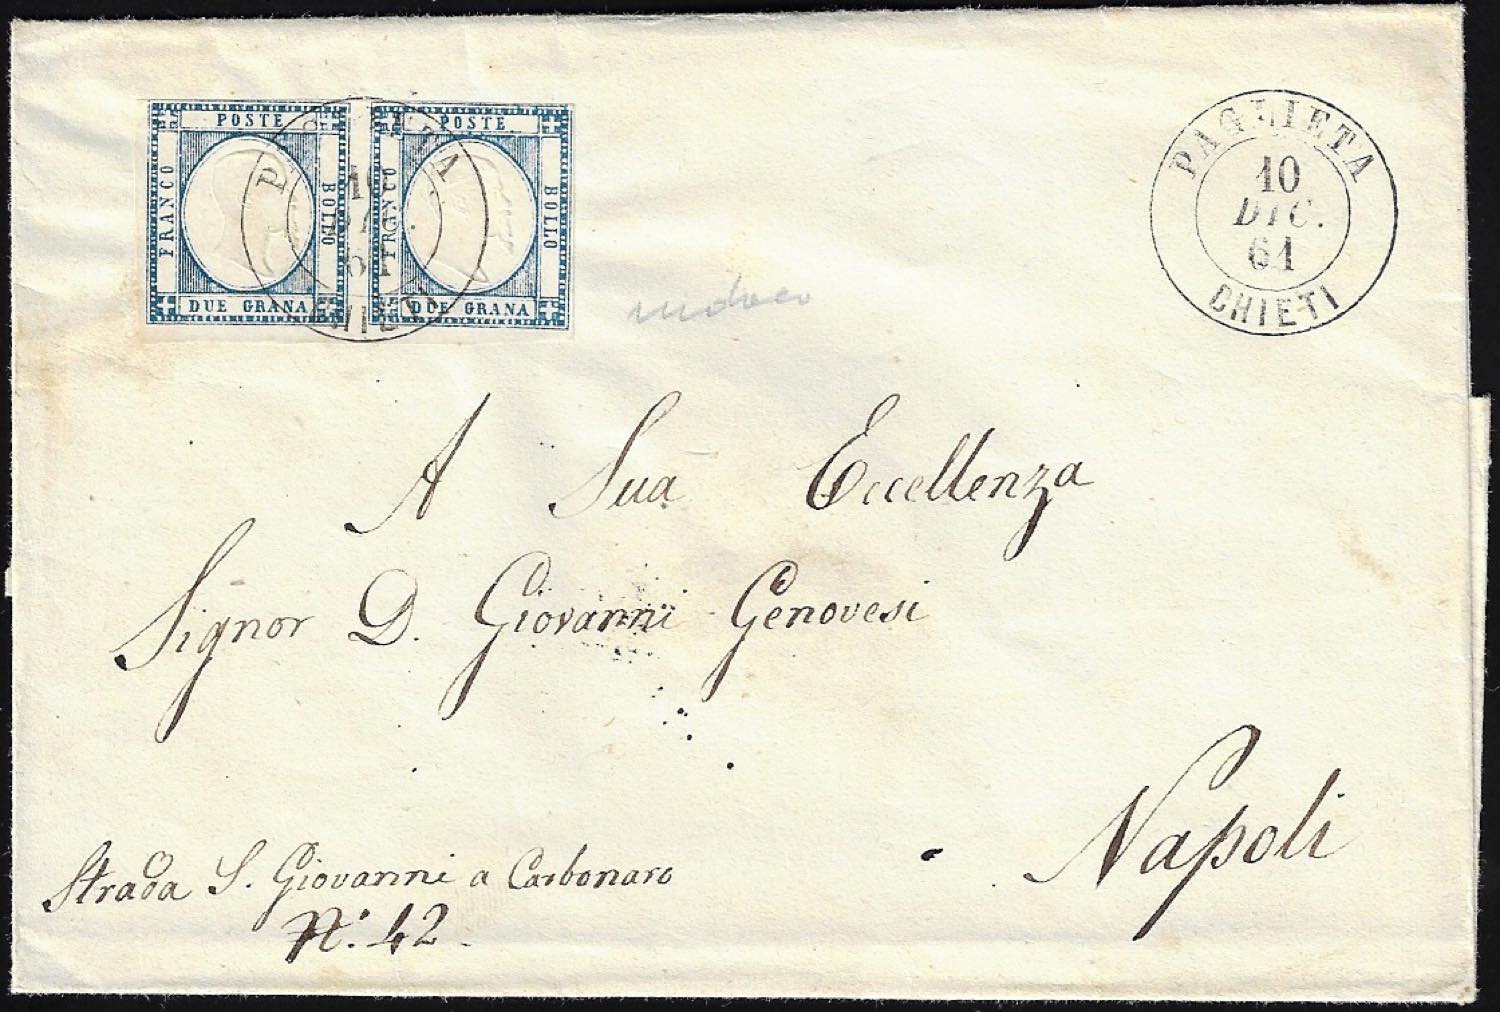 POSTE
FRANCO
BOLLO
DUE GRANA
POSTE
FRANCO
BOLLO
DUE GRANA
10
61
PAGLIETA
10
DIC.
61
CHIETI
A Sua Eccellenza
Signor D. Giovanni Genovesi
Napoli
Strada S. Giovanni a Carbonaro
N.° 42